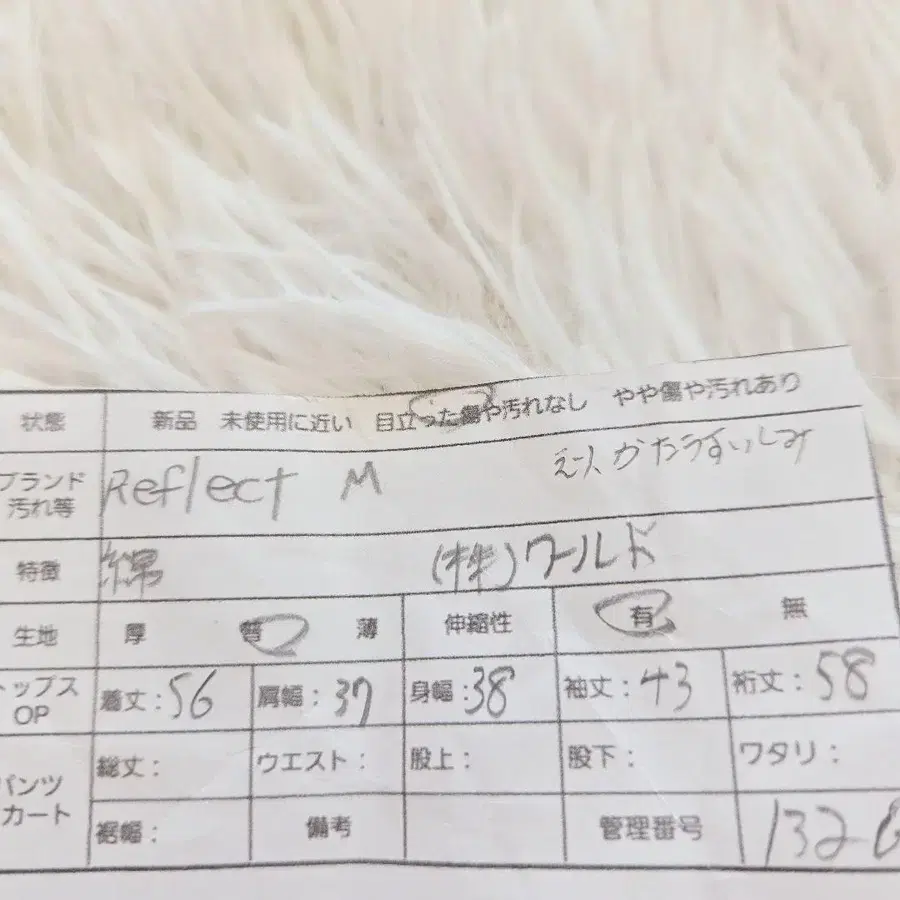 状態 新品 未使用に近い 目立った傷や汚れなし やや傷や汚れあり
ブランド Reflect M
汚れ等
特徴 綿 (株)ワールド
生地 厚 普 薄 伸縮性 有 無
トップス 着丈:56 肩幅:37 身幅:38 袖丈:43 裄丈:58
OP
パンツ 総丈: ウエスト: 股上: 股下: ワタリ:
カート 裾幅: 備考 管理番号 132